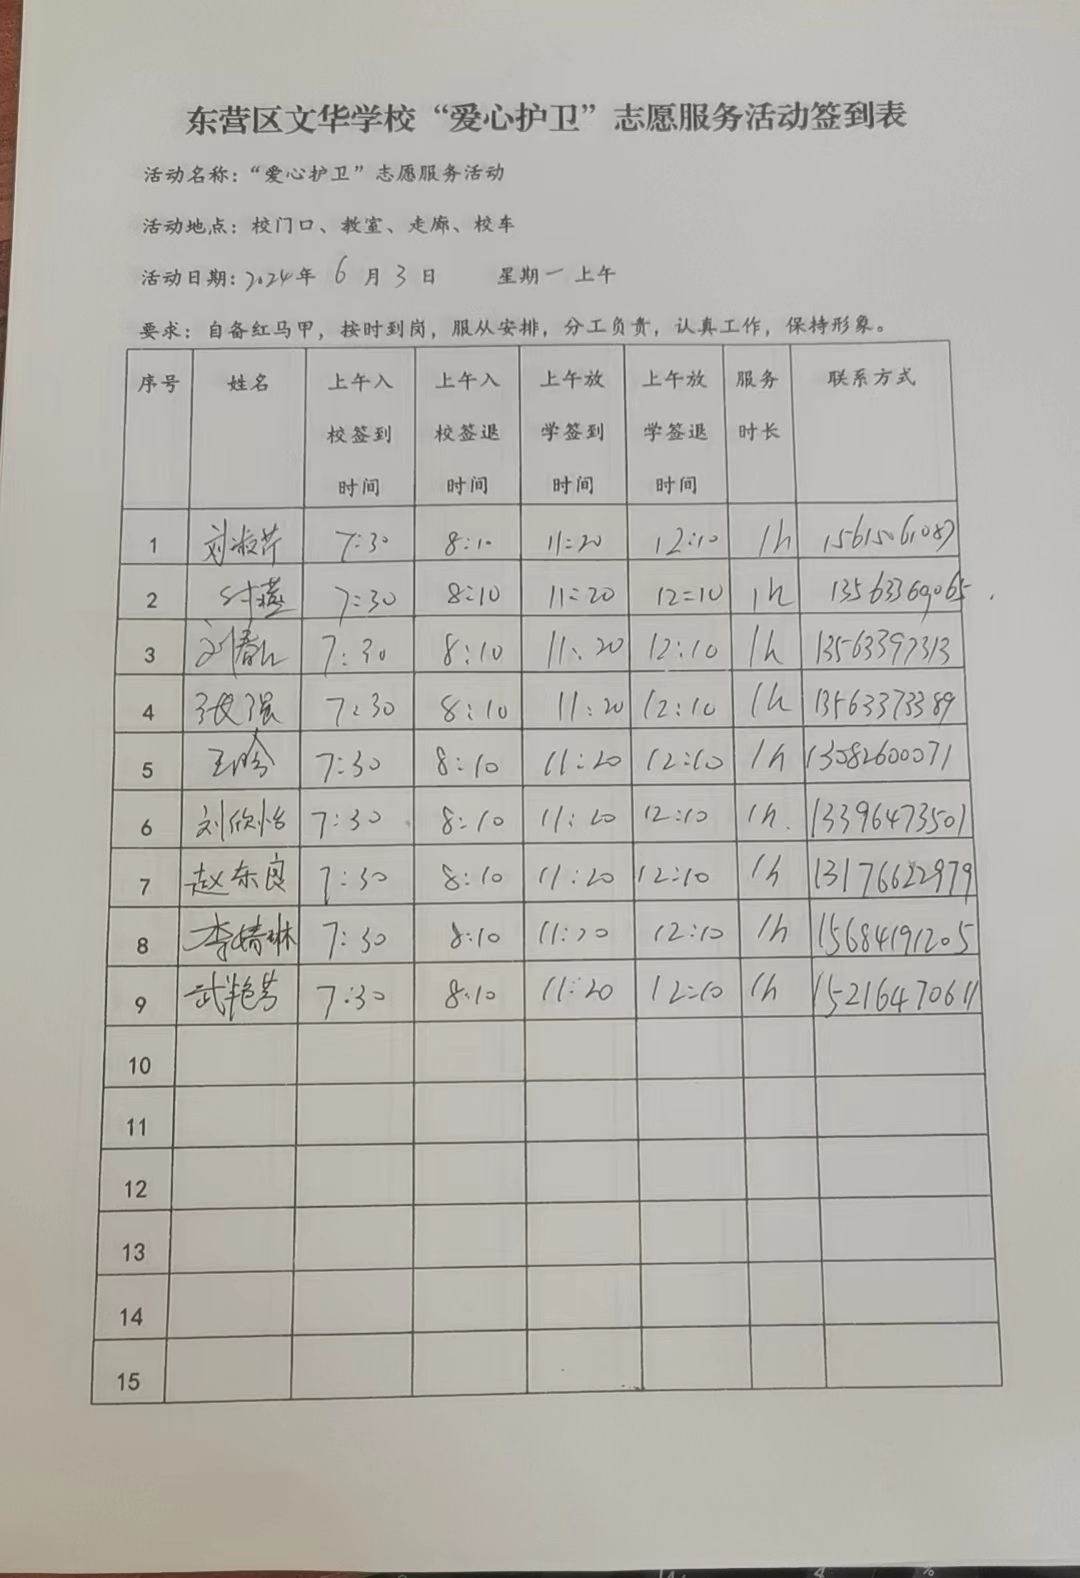 东营区文华学校“爱心护卫”志愿服务活动签到表
活动名称：“爱心护卫”志愿服务活动
活动地点：校门口、教室、走廊、校车
活动日期：2024年 6 月 3 日 星期一 上午
要求：自备红马甲，按时到岗，服从安排，分工负责，认真工作，保持形象。
序号 姓名 上午入校签到时间 上午入校签退时间 上午放学签到时间 上午放学签退时间 服务时长 联系方式
1 刘淑芹 7:30 8:10 11:20 12:10 1h 15615061087
2 付燕 7:30 8:10 11:20 12:10 1h 13563369065
3 刘春江 7:30 8:10 11:20 12:10 1h 13563397313
4 张强 7:30 8:10 11:20 12:10 1h 13563373389
5 王晗 7:30 8:10 11:20 12:10 1h 13082600071
6 刘欣怡 7:30 8:10 11:20 12:10 1h. 13396473501
7 赵东良 7:30 8:10 11:20 12:10 1h 13176622979
8 李婧琳 7:30 8:10 11:20 12:10 1h 15684191205
9 武艳芳 7:30 8:10 11:20 12:10 1h 15216470611
10
11
12
13
14
15